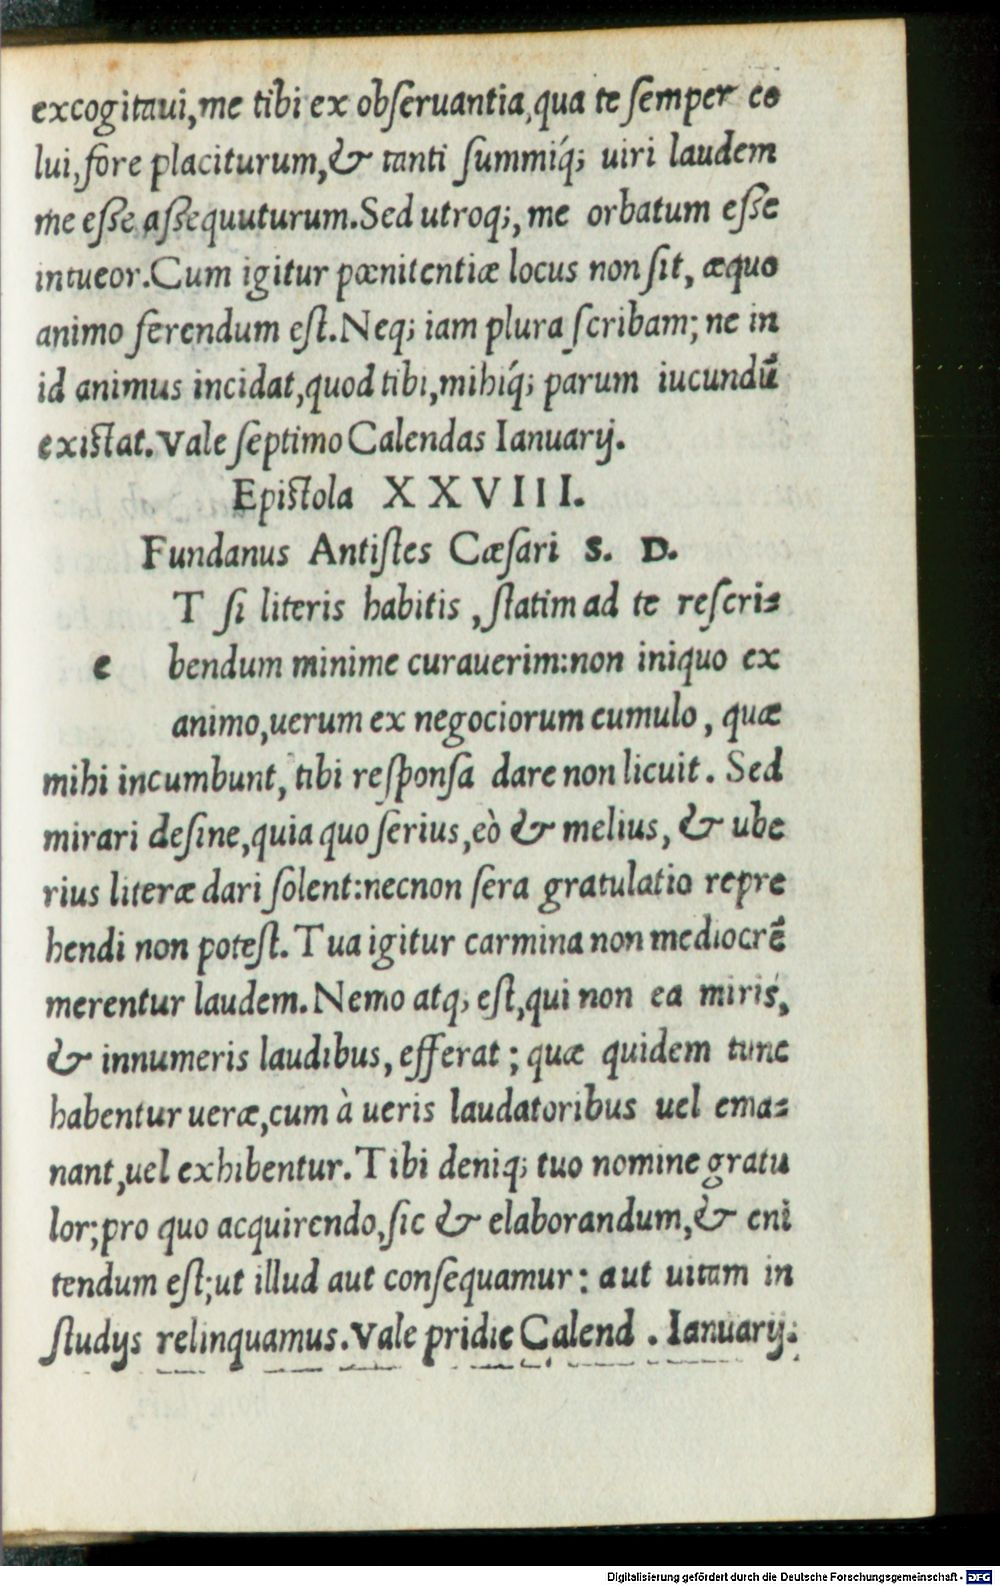 excogitaui,me tibi ex obſeruantia,qua te ſemper co
lui,fore placiturum,& tanti ſummiq́; uiri laudem
me eſſe aſſequuturum.Sed utroq;,me orbatum eſſe
intueor.Cum igitur pœnitentiæ locus non ſit, æquo
animo ferendum eſt.Neq; iam plura ſcribam; ne in
id animus incidat,quod tibi,mihiq́; parum iucundũ
exiſtat.Vale ſeptimo Calendas Ianuarij.
Epiſtola XXVIII.
Fundanus Antiſtes Cæſari S. D.
T ſi literis habitis ,ſtatim ad te reſcri⸗
e bendum minime curauerim:non iniquo ex
animo,uerum ex negociorum cumulo, quæ
mihi incumbunt, tibi reſponſa dare non licuit. Sed
mirari deſine,quia quo ſerius,eò & melius, & ube
rius literæ dari ſolent:necnon ſera gratulatio repre
hendi non poteſt. Tua igitur carmina non mediocrẽ
merentur laudem.Nemo atq; eſt,qui non ea miris,
& innumeris laudibus, efferat ; quæ quidem tunc
habentur ueræ,cum à ueris laudatoribus uel ema⸗
nant,uel exhibentur.Tibi deniq; tuo nomine gratu
lor;pro quo acquirendo,ſic & elaborandum,& eni
tendum eſt;ut illud aut conſequamur: aut uitam in
ſtudijs relinquamus.Vale pridie Calend . Ianuarij.
Digitalisierung gefördert durch die Deutsche Forschungsgemeinschaft - DFG